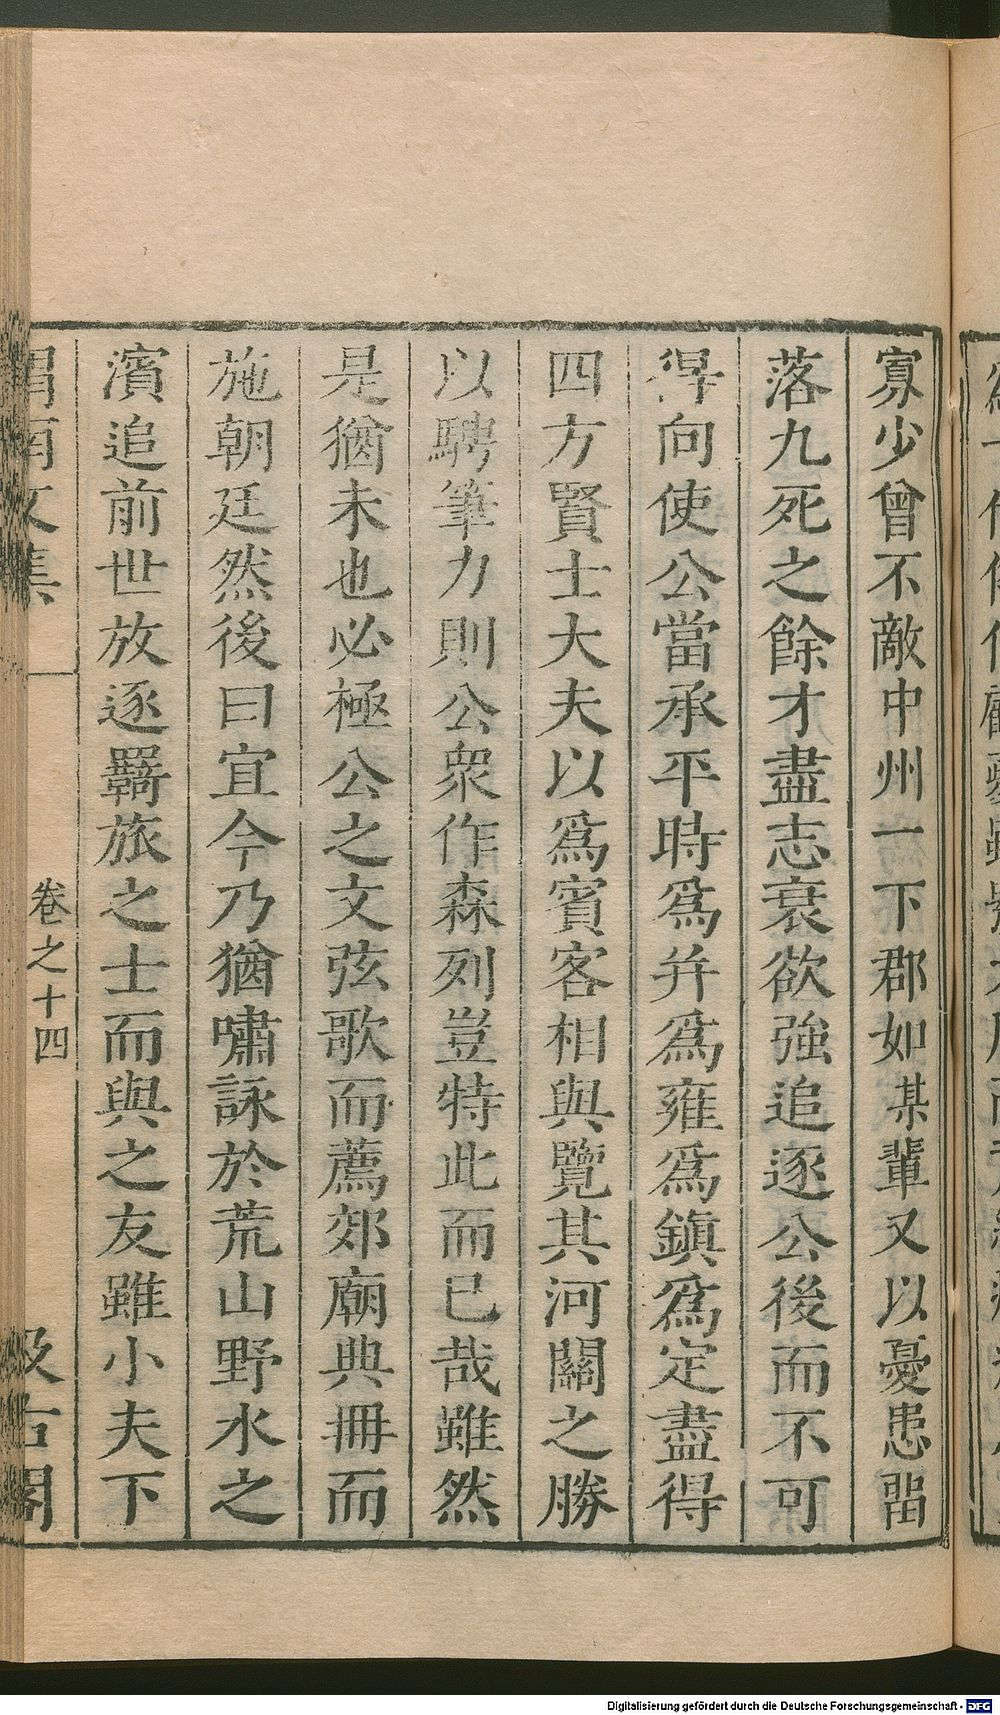 寡少曾不敵中州一下郡如某輩又以憂患留
落九死之餘才盡志衰欲強追逐公後而不可
得向使公當承平時爲并爲雍爲鎮爲定盡得
四方賢士大夫以爲賓客相與覽其河關之勝
以騁筆力則公衆作森列豈特此而已哉雖然
是猶未也必極公之文弦歌而薦郊廟典冊而
施朝廷然後曰宜今乃猶嘯詠於荒山野水之
濱追前世放逐羈旅之士而與之友雖小夫下
渭南文集
卷之十四
汲古閣
Digitalisierung gefördert durch die Deutsche Forschungsgemeinschaft - DFG